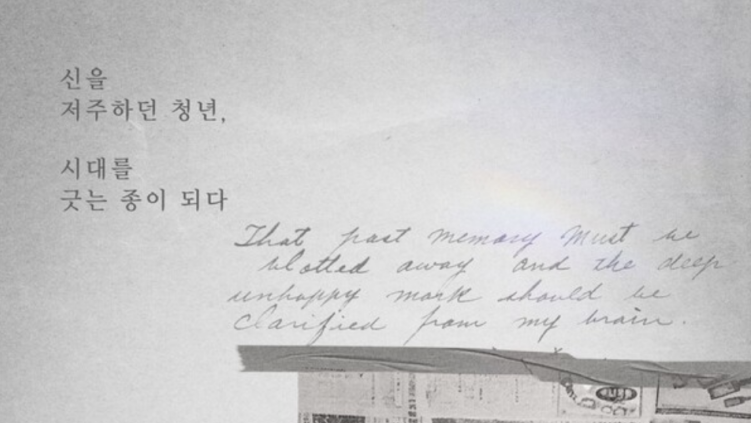 신을
저주하던 청년,
시대를
긋는 종이 되다
That past memory must be
blotted away and the deep
unhappy mark should be
clarified from my brain.